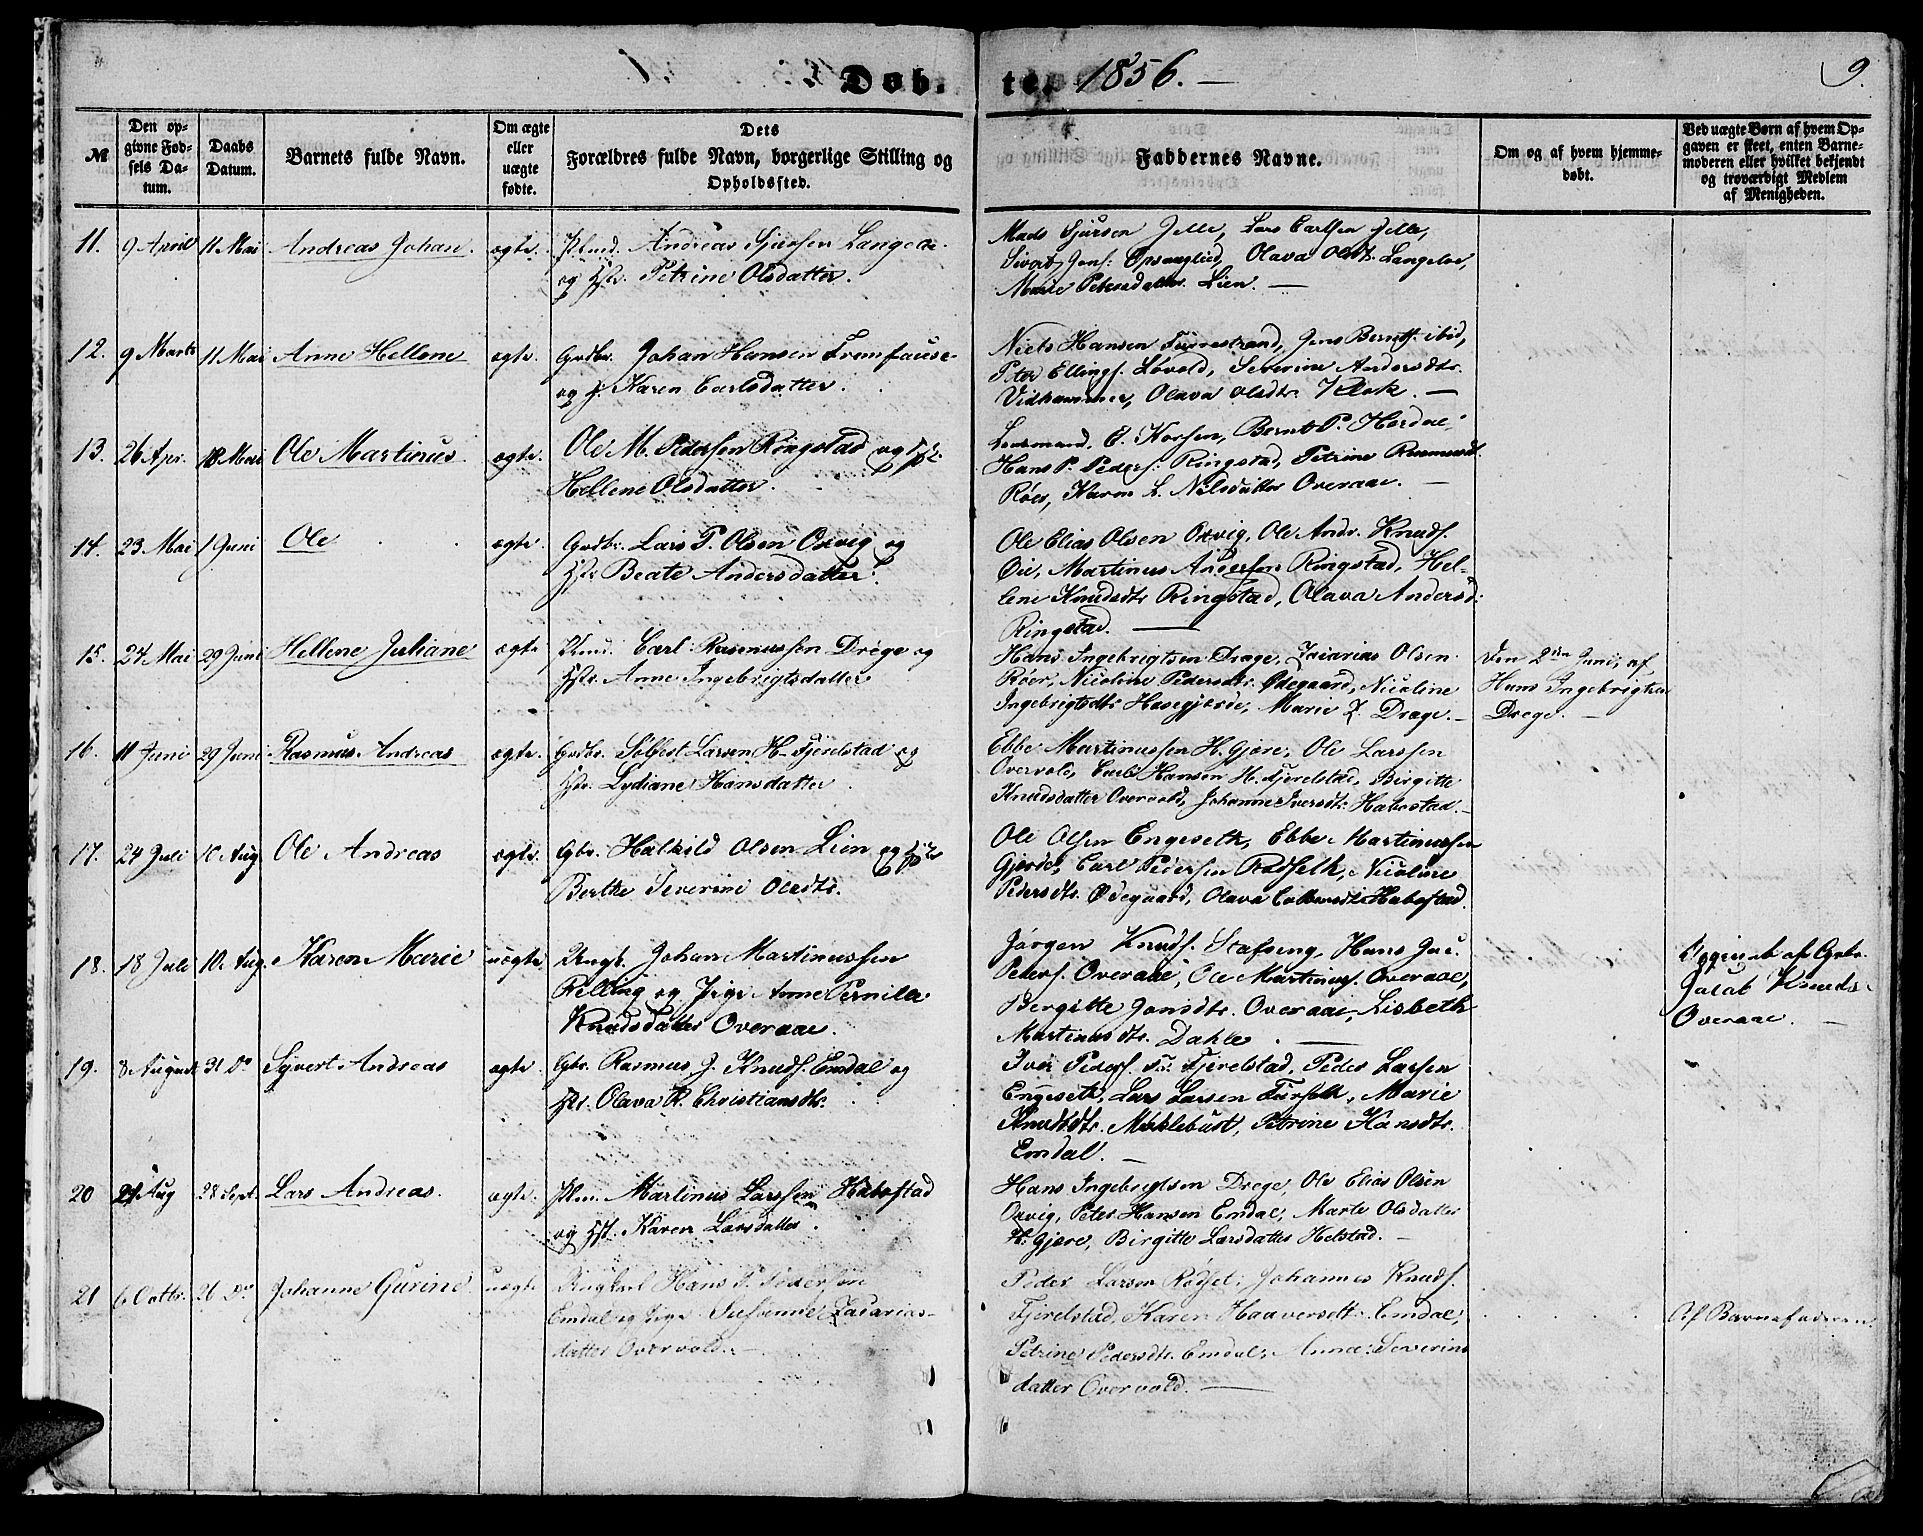 Døbte 1856. — 9.
№
Den opgivne Fødsels Datum.
Daabs Datum.
Barnets fulde Navn.
Om ægte eller uægte fødte.
Dets Forældres fulde Navn, borgerlige Stilling og Opholdssted.
Faddernes Navne.
Om og af hvem hjemmedøbt.
Ved uægte Børn af hvem Opgaven er skeet, enten Barnemoderen eller hvilket bekjendt og troværdigt Medlem af Menigheden.
11. 9 April 11 Mai Andreas Johan. ægte. Andreas Sjursen Langeloe
og Hstr. Petrine Olsdatter.
Mads Sjursen Jelle, Lars Carlsen Jelle,
Sivert Jens: Opsanglid, Olava Olsdt. Langeloe,
Marie Petersdatter Lien. —
12. 9 Marts 11 Mai Anne Hellene ægte. Grdbr. Johan Hansen
og H. Karen Carlsdatter.
Niels Hansen Furrestrand, Jens Bernts. ibid,
Peter Ellings. Løvold, Severine Andersdtr.
Vidhammer, Olava Olsdtr. Klok. —
13. 26 Apr. 18 Mai Ole Martinus ægte. Ole M. Pedersen Ringstad og Hstr.
Hellene Olsdatter.
Lensmand. E. Korsen, Bernt P. Hovdae,
Hans P. Peders: Ringstad, Petrine Rasmusdt
Røer, Karen L. Nilsdatter Overaae. —
14. 23 Mai 1 Juni Ole ægte. Grdbr. Lars P. Olsen Oxvig og
Hstr Beate Andersdatter.
Ole Elias Olsen Oxvig, Ole Andr. Knuds.
Øie, Martinus Andersen Ringstad, Hel-
lene Knudsdtr Ringstad, Olava Andersd:
Ringstad. —
15. 24 Mai 29 Juni Hellene Juliane ægte Carl Rasmussen Drege og
Hstr. Anne Ingebrigtsdatter
Hans Ingebrigtsen Drage, Zacarias Olsen
Røer, Nicoline Pedersdtr. Ødegaard, Nicoline
Ingebrigtsdtr Hasegjerde, Marie Z. Drage. —
Den 2den Juni, af
Hans Ingebrigtsen
Drege. —
16. 11 Juni 29 Juni Rasmus Andreas ægte. Grdbr. Sølfest Larsen H. Fjerelstad og
Hstr. Lydiane Hansdatter
Ebbe Martinussen H. Gjøre, Ole Larssen
Overvold, Carl Hansen H. Fjerelstad, Birgitte
Knudsdatter Overvold, Johanne Iversdtr. Habostad. —
17. 24 Juli 10 Aug. Ole Andreas ægte. Gbr. Halkild Olsen Lien og Hstr
Berthe Severine Olsdtr.
Ole Olsen Engeseth, Ebbe Martinussen
Gjørde, Carl Pedersen Rødseth, Nicoline
Pedersdtr. Ødegaard, Olava Habostad.
18. 18 Juli 10. Aug. Karen Marie uægte Ungk. Johan Martinussen
Relling og Pige Anne Pernille
Knudsdatter Overaae.
Jørgen Knuds. Stafseng, Hans Jac.
Peders. Overaae, Ole Martinus. Overaae,
Bergitte Jonsdtr. Overaae, Lisbeth
Martinusdtr. Dahle. —
Opgivet af Gbr.
Jacob Knuds.
Overaae. —
19. 8 August 31 Do Syvert Andreas ægte. Gbr. Rasmus J. Knuds. Emdal og
Hstr. Olava R. Christiansdtr.
Iver Peders. Fjerelstad, Peder Larsen
Engeseth, Lars Larsen Furseth, Marie
Knudsdtr. Møklebust, Petrine Hansdtr.
Emdal. —
20 Aug 28 Sept. Lars Andreas. ægte. Martinus Larssen Habostad
og Hst. Karen Larsdatter.
Hans Ingebrigtsen Drege, Ole Elias Olsen
Oxvig, Peter Hansen Emdal, Marte Olsdatter
H. Gjøre, Birgitte Larsdatter Helstad. —
21 6 Octbr. 26 Do Johanne Gurine uægte Ungkarl Hans P. Pedersen
Emdal og Pige Susanne Zacarias-
datter Overvold. —
Peder Larsen Rødset, Johannes Knuds.
Fjerelstad, Karen Haaversdtr. Emdal,
Petrine Pedersdtr. Emdal, Anne Severine
datter Overvold. —
Af Barnefaderen.